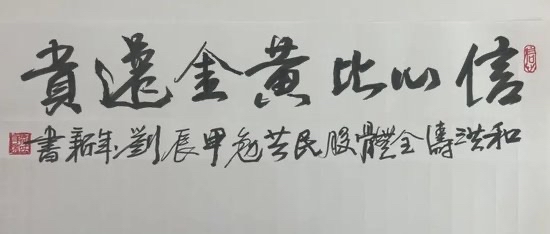 信心比黃金還貴
和洪濤全體股民共勉甲辰劉年新書